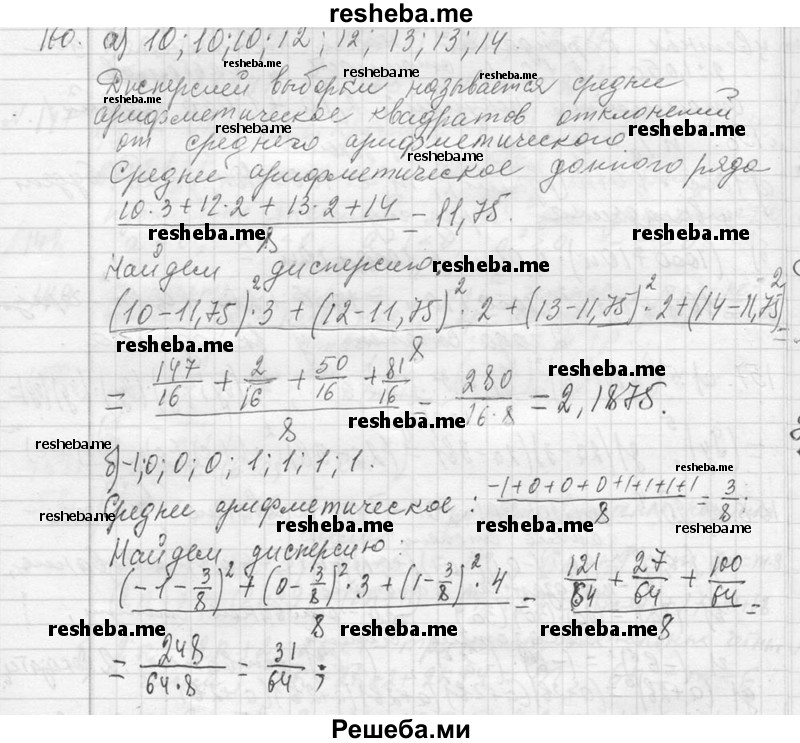 resheba.me
160. а) 10; 10; 10; 12; 12; 13; 13; 14.
resheba.me resheba.me resheba.me
Дисперсией выборки называется среднее
арифметическое квадратов отклонений
resheba.me resheba.me
от среднего арифметического.
resheba.me
Среднее арифметическое данного ряда
(10·3+12·2+13·2+14)/8 = 11,75.
resheba.me resheba.me
Найдем дисперсию:
((10-11,75)²·3 + (12-11,75)²·2 + (13-11,75)²·2 + (14-11,75)²)/8 =
resheba.me resheba.me
= (147/16 + 2/16 + 50/16 + 81/16)/8 = 280/(16·8) = 2,1875.
resheba.me resheba.me
б) -1; 0; 0; 0; 1; 1; 1; 1.
resheba.me
Среднее арифметическое: (-1+0+0+0+1+1+1+1)/8 = 3/8.
resheba.me resheba.me resheba.me
Найдем дисперсию:
((-1-3/8)² + (0-3/8)²·3 + (1-3/8)²·4)/8 = (121/64 + 27/64 + 100/64)/8 =
resheba.me resheba.me resheba.me
= 248/(64·8) = 31/64;
Решеба.ми